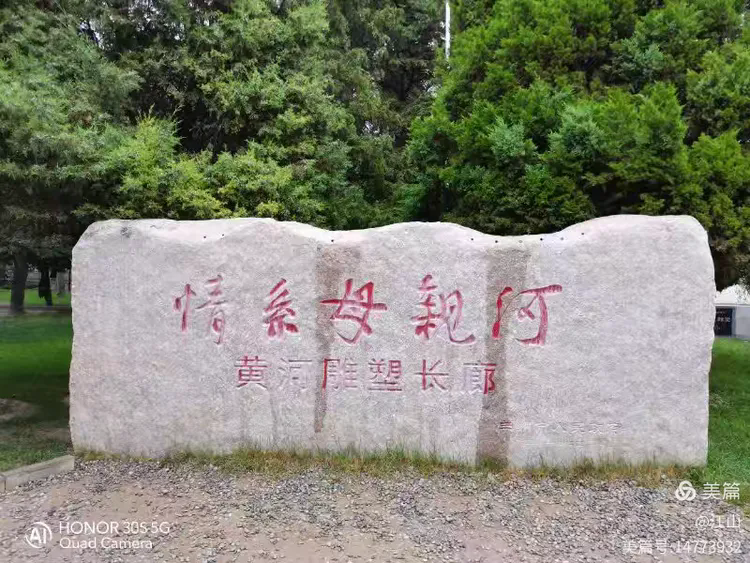 情系母親河
黄河雕塑长廊
HONOR 30S 5G
Quad Camera
AI
美篇
@江山
美篇号:14773932